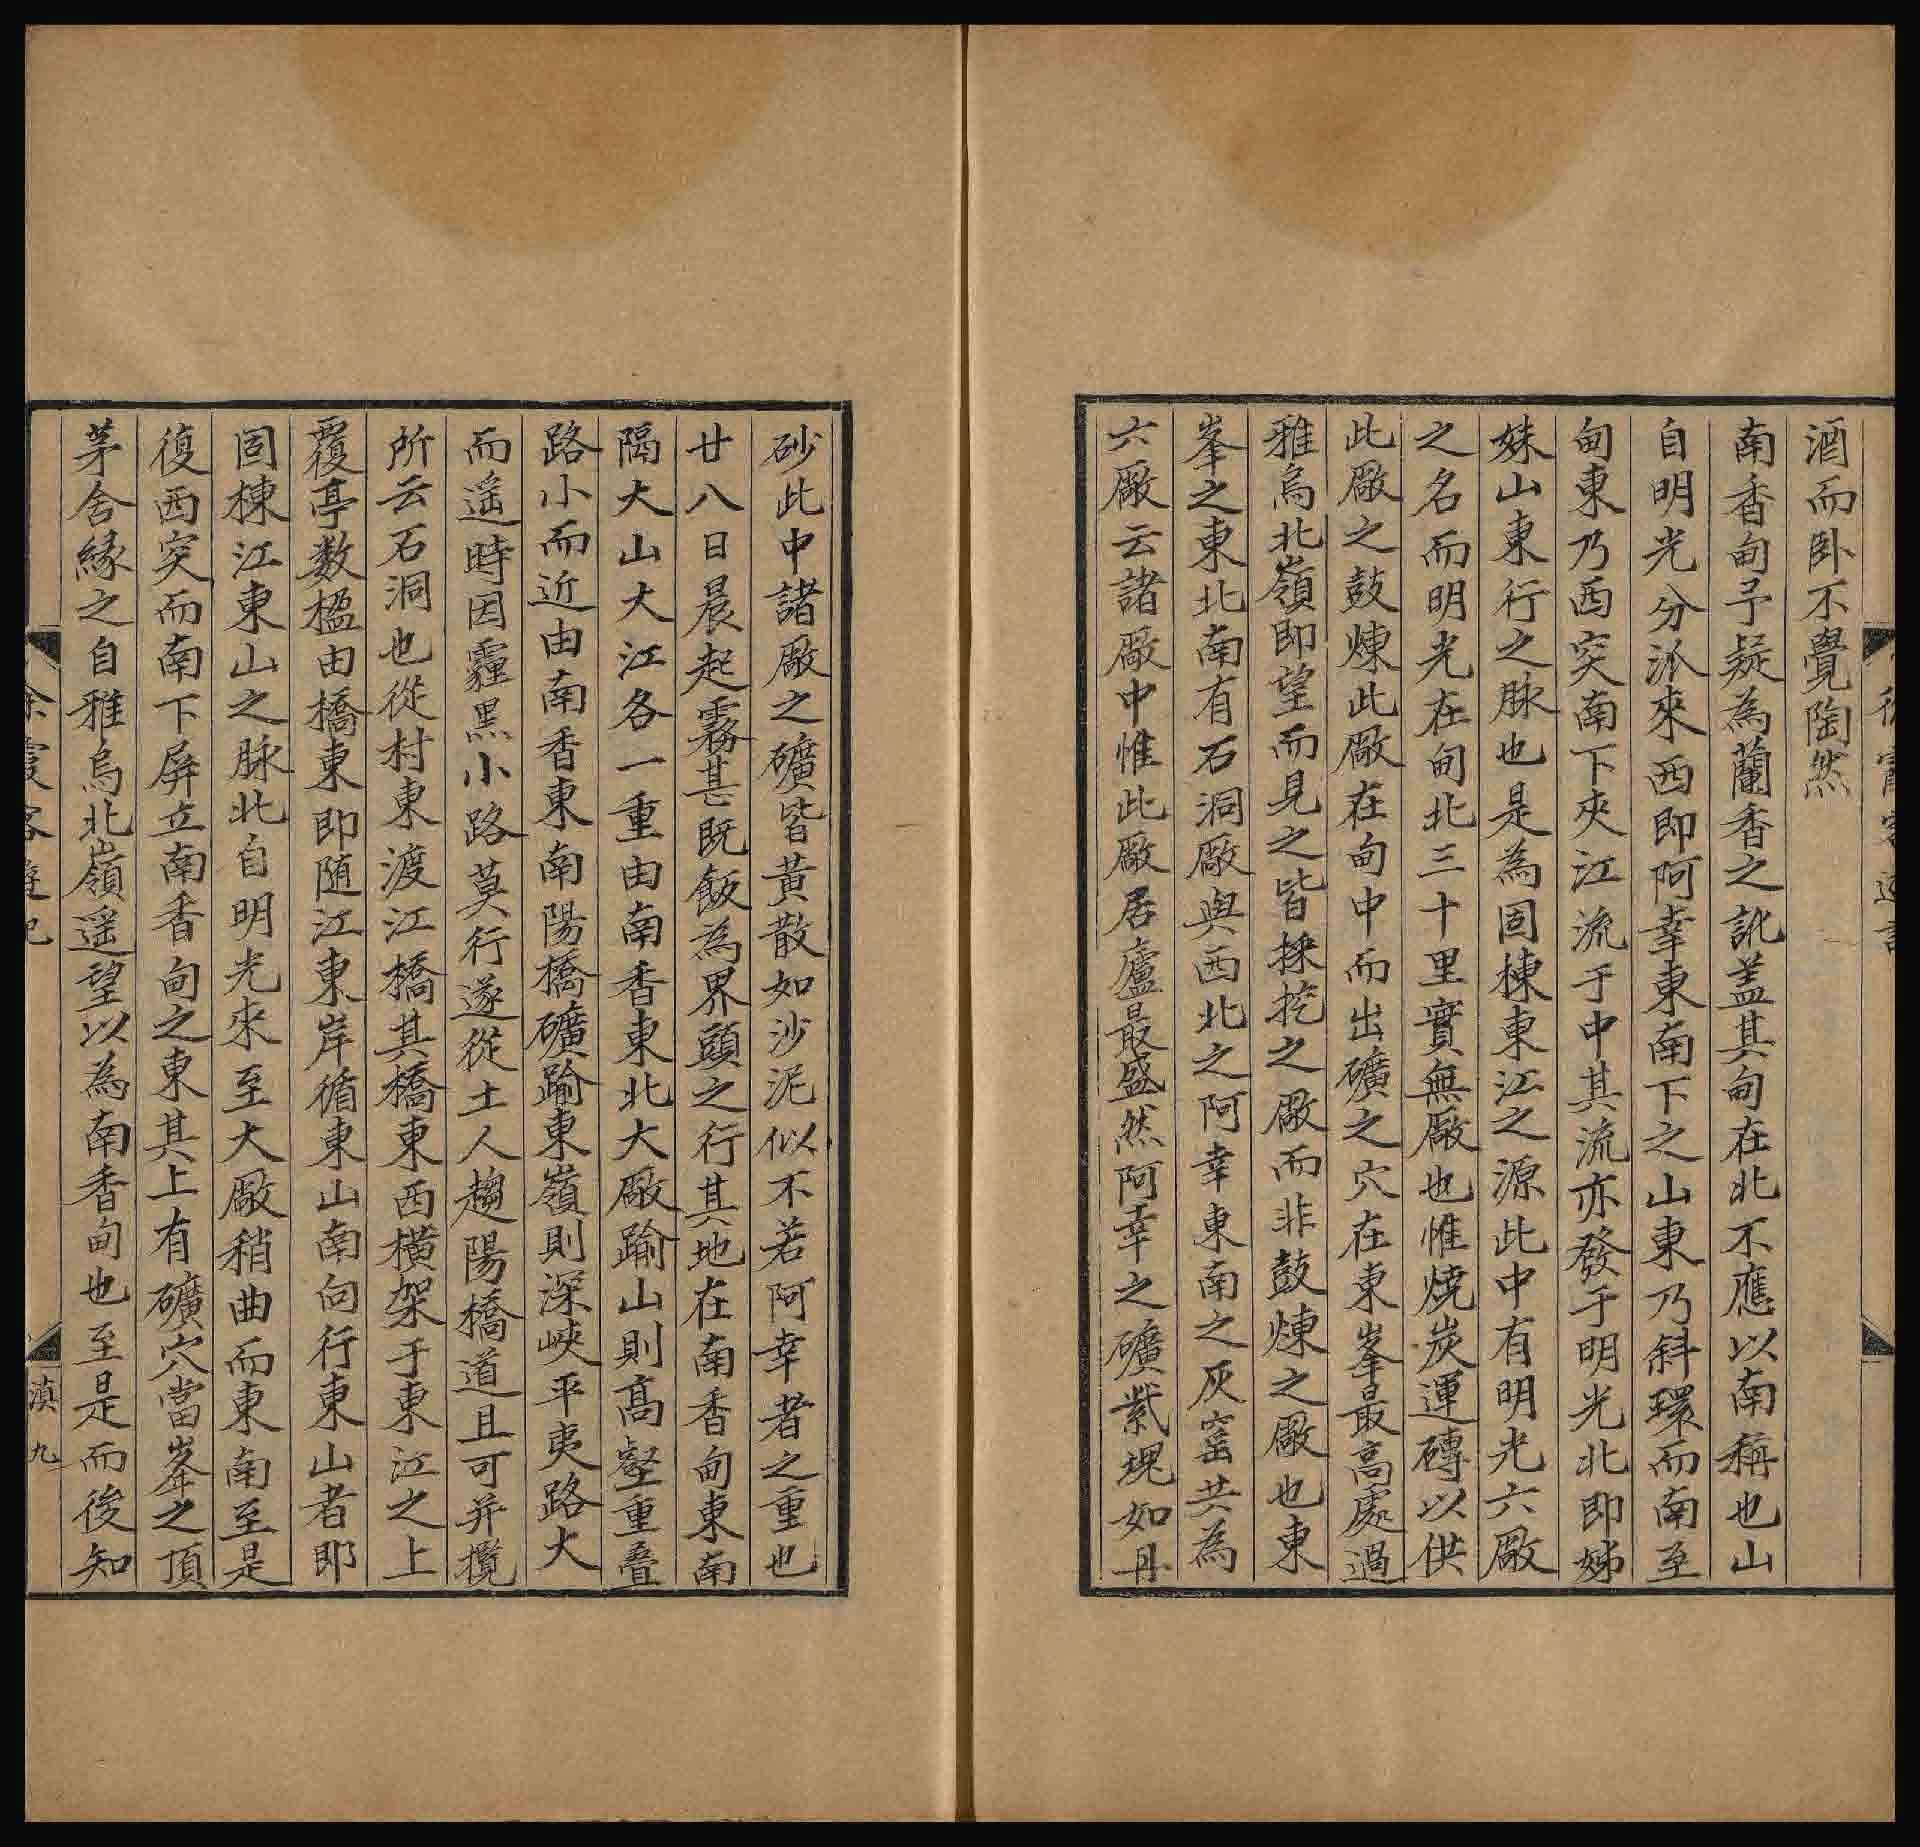 酒而卧不覺陶然
南香甸予疑為蘭香之訛盖其甸在北不應以南稱也山
自明光分派來西即阿幸東南下之山東乃斜環而南至
甸東乃西突南下夾江流于中其流亦發于明光北即姊
妹山東行之脉也是為固棟東江之源此中有明光六廠
之名而明光在甸北三十里實無廠也惟燒炭運磚以供
此廠之鼓煉此廠在甸中而出礦之穴在東峯最高處過
雅烏北嶺即望而見之皆採挖之廠而非鼓煉之廠也東
峯之東北南有石洞廠與西北之阿幸東南之灰窰共為
六廠云諸廠中惟此廠居廬最盛然阿幸之礦紫塊如丹
砂此中諸廠之礦皆黃散如沙泥似不若阿幸者之重也
廿八日晨起霧甚既飯為界頭之行其地在南香甸東南
隔大山大江各一重由南香東北大廠踰山則髙壑重叠
路小而近由南香東南陽橋礦踰東嶺則深峽平夷路大
而遥時因霾黑小路莫行遂從土人趨陽橋道且可并攬
所云石洞也從村東渡江橋其橋東西橫架于東江之上
覆亭数楹由橋東即随江東岸循東山南向行東山者即
固棟江東山之脉北自明光來至大廠稍曲而東南至是
復西突而南下屏立南香甸之東其上有礦穴當峯之頂
茅舍緣之自雅烏北嶺遥望以為南香甸也至是而後知
徐霞客遊記
滇九